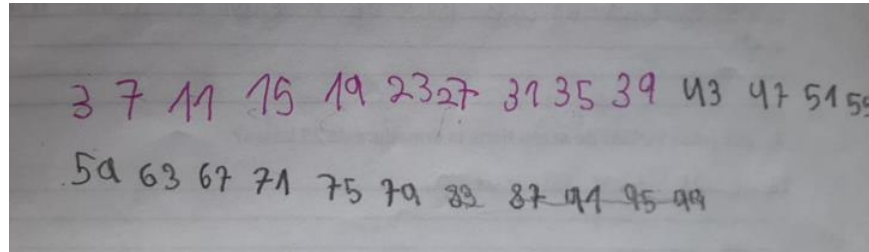 3 7 11 15 19 23 27 31 35 39 43 47 51 55
59 63 67 71 75 79 83 87 91 95 99